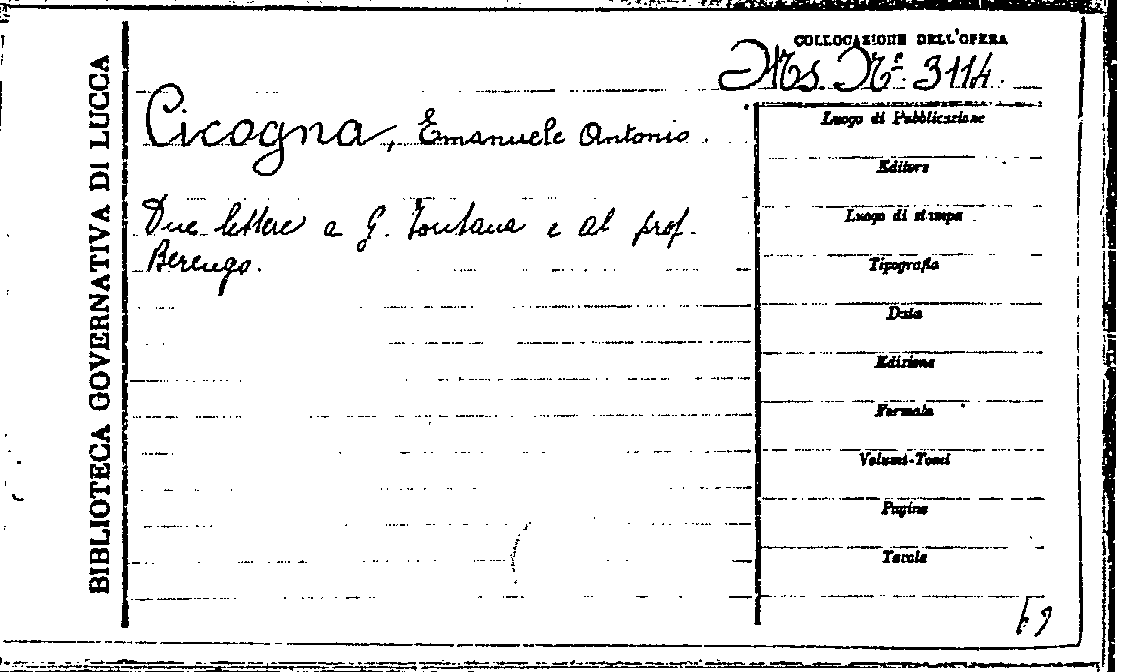 BIBLIOTECA GOVERNATIVA DI LUCCA
COLLOCAZIONE DELL'OPERA
Ms. Nº. 3114.
Cicogna, Emanuele Antonio.
Due lettere a G. Fontana e al prof.
Berengo.
Luogo di Pubblicazione
Editore
Luogo di stampa
Tipografia
Data
Edizione
Formato
Volumi-Tomi
Pagine
Tavole